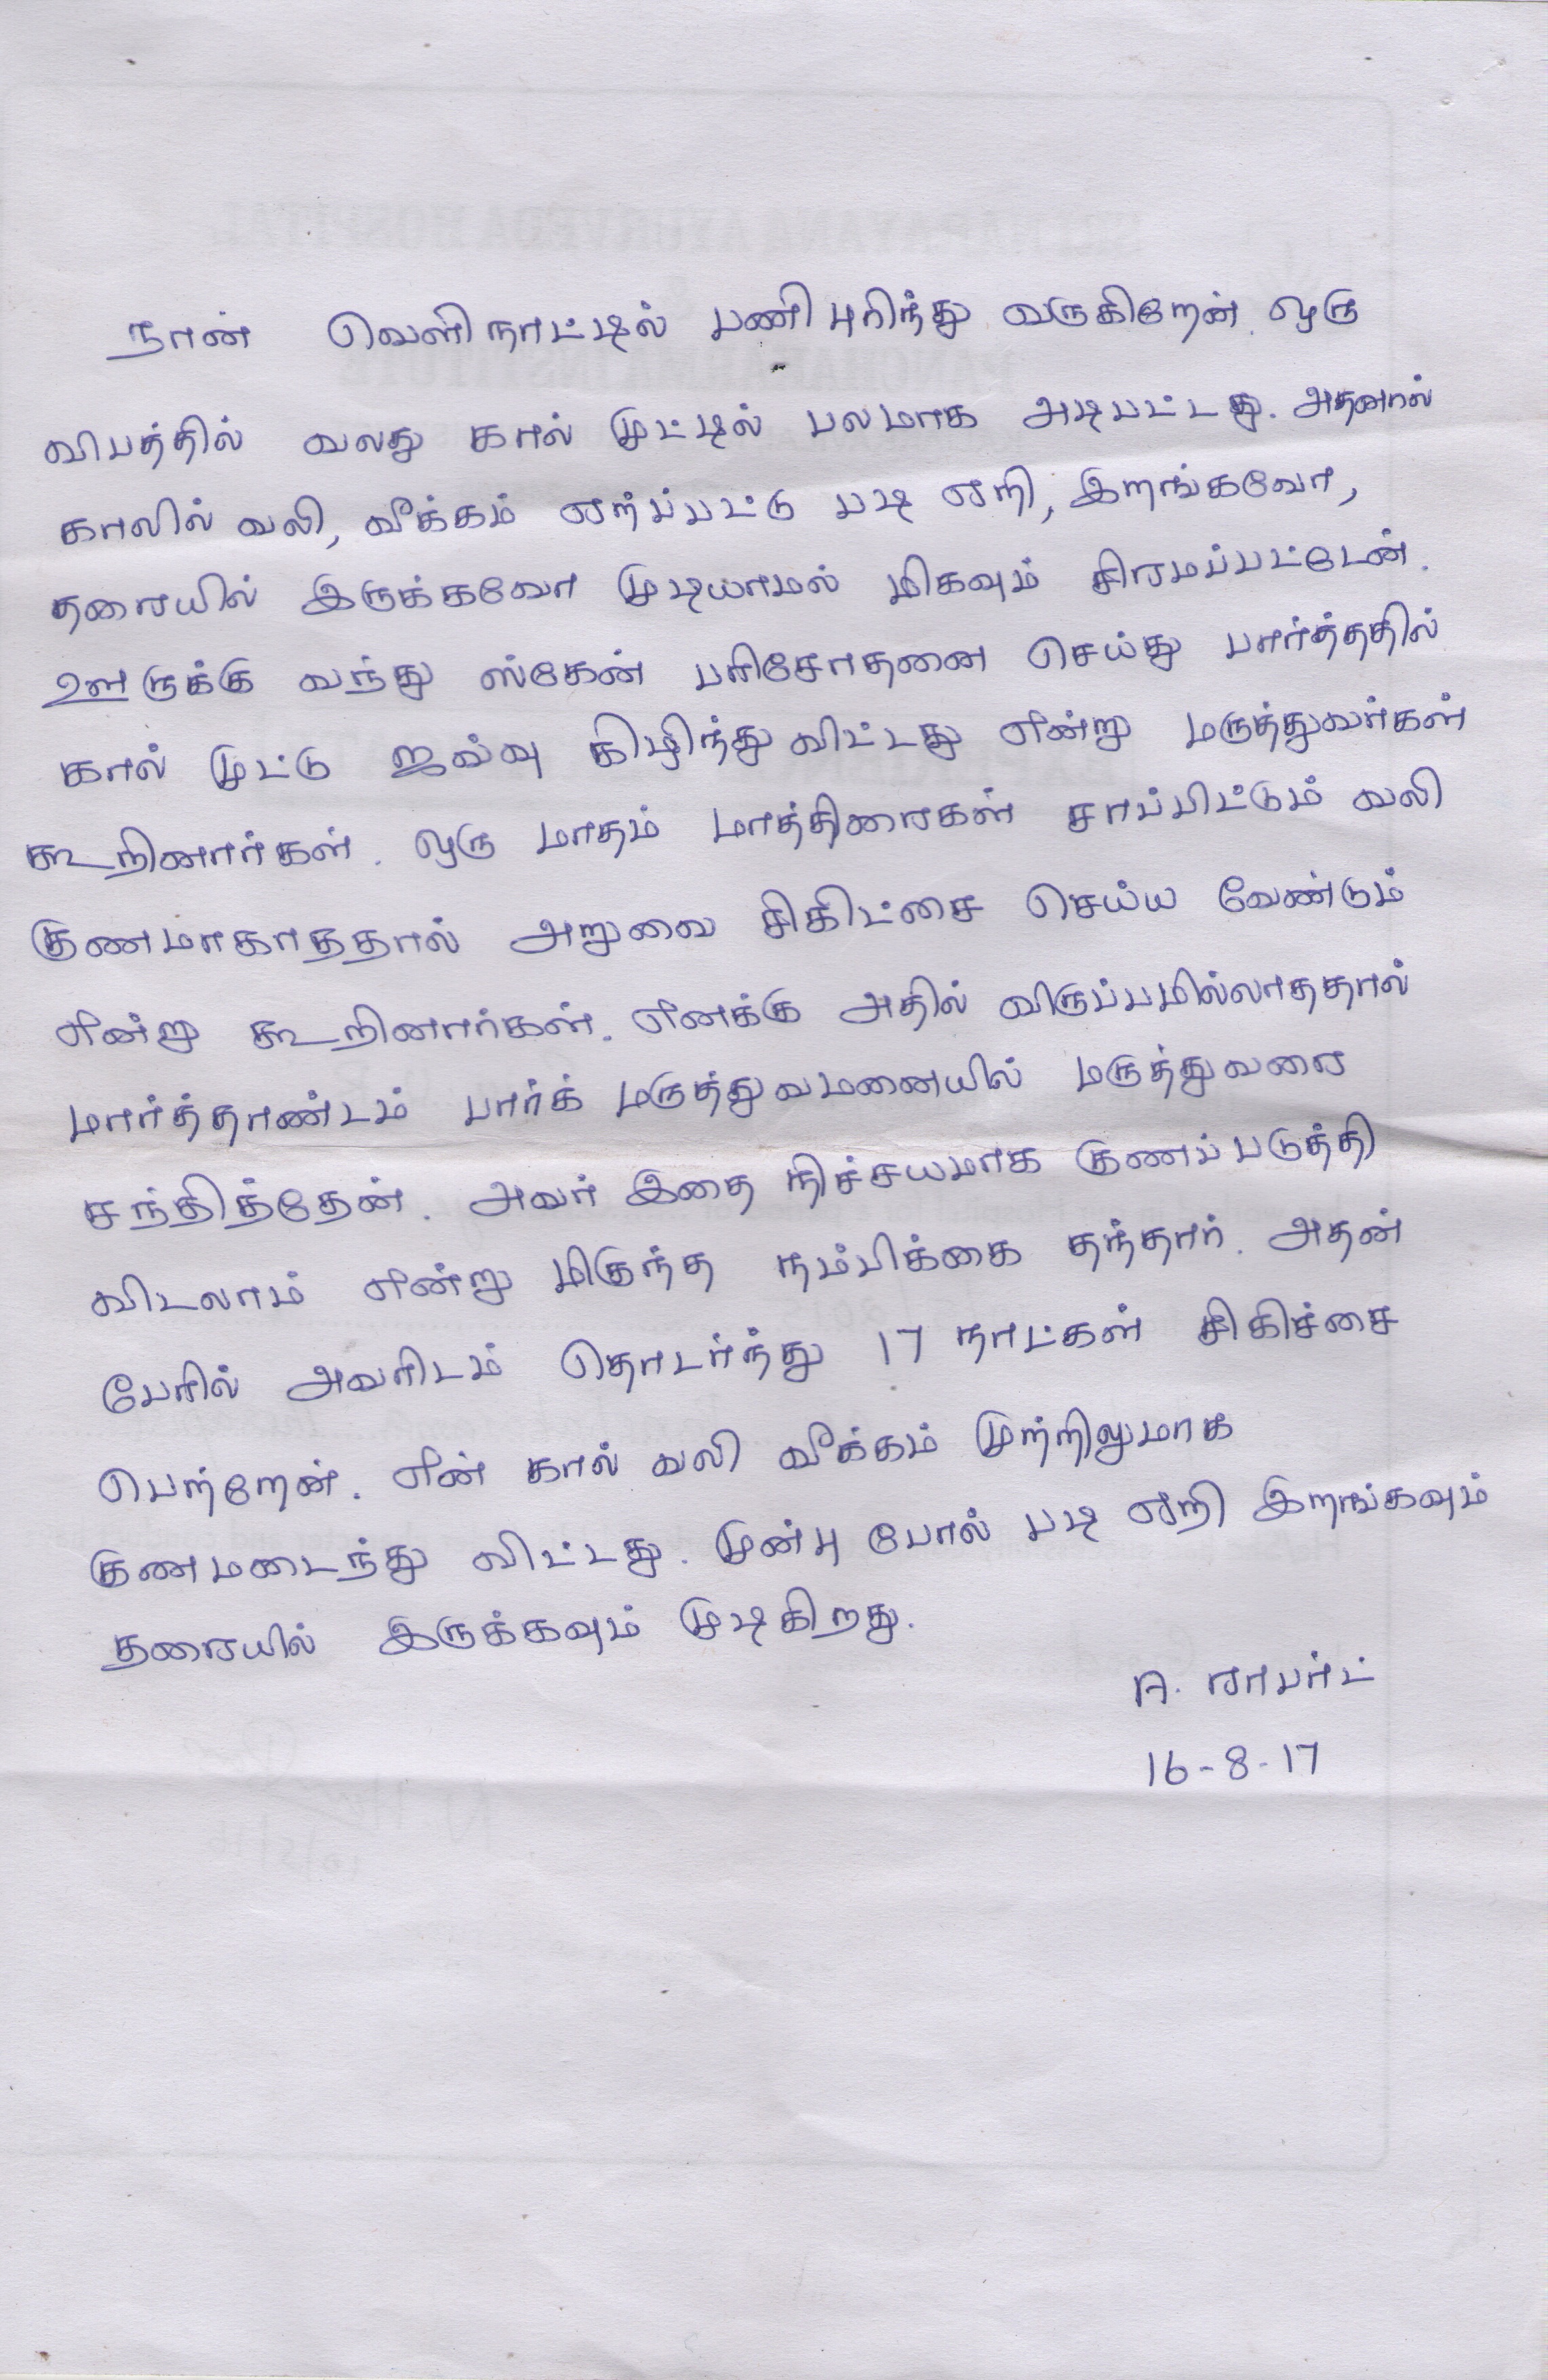 நான் வெளிநாட்டில் பணி புரிந்து வருகிறேன். ஒரு
விபத்தில் வலது கால் முட்டில் பலமாக அடிபட்டது. அதனால்
காலில் வலி, வீக்கம் ஏற்ப்பட்டு படி ஏறி, இறங்கவோ,
தரையில் இருக்கவோ முடியாமல் மிகவும் சிரமப்பட்டேன்.
ஊருக்கு வந்து ஸ்கேன் பரிசோதனை செய்து பார்த்ததில்
கால் முட்டு ஜவ்வு கிழிந்து விட்டது என்று மருத்துவர்கள்
கூறினார்கள். ஒரு மாதம் மாத்திரைகள் சாப்பிட்டும் வலி
குணமாகாததால் அறுவை சிகிட்சை செய்ய வேண்டும்
என்று கூறினார்கள். எனக்கு அதில் விருப்பமில்லாததால்
மார்த்தாண்டம் பார்க் மருத்துவமனையில் மருத்துவரை
சந்தித்தேன். அவர் இதை நிச்சயமாக குணப்படுத்தி
விடலாம் என்று மிகுந்த நம்பிக்கை தந்தார். அதன்
பேரில் அவரிடம் தொடர்ந்து 17 நாட்கள் சிகிச்சை
பெற்றேன். என் கால் வலி வீக்கம் முற்றிலுமாக
குணமடைந்து விட்டது. முன்பு போல் படி ஏறி இறங்கவும்
தரையில் இருக்கவும் முடிகிறது.
A. ராபர்ட்
16-8-17